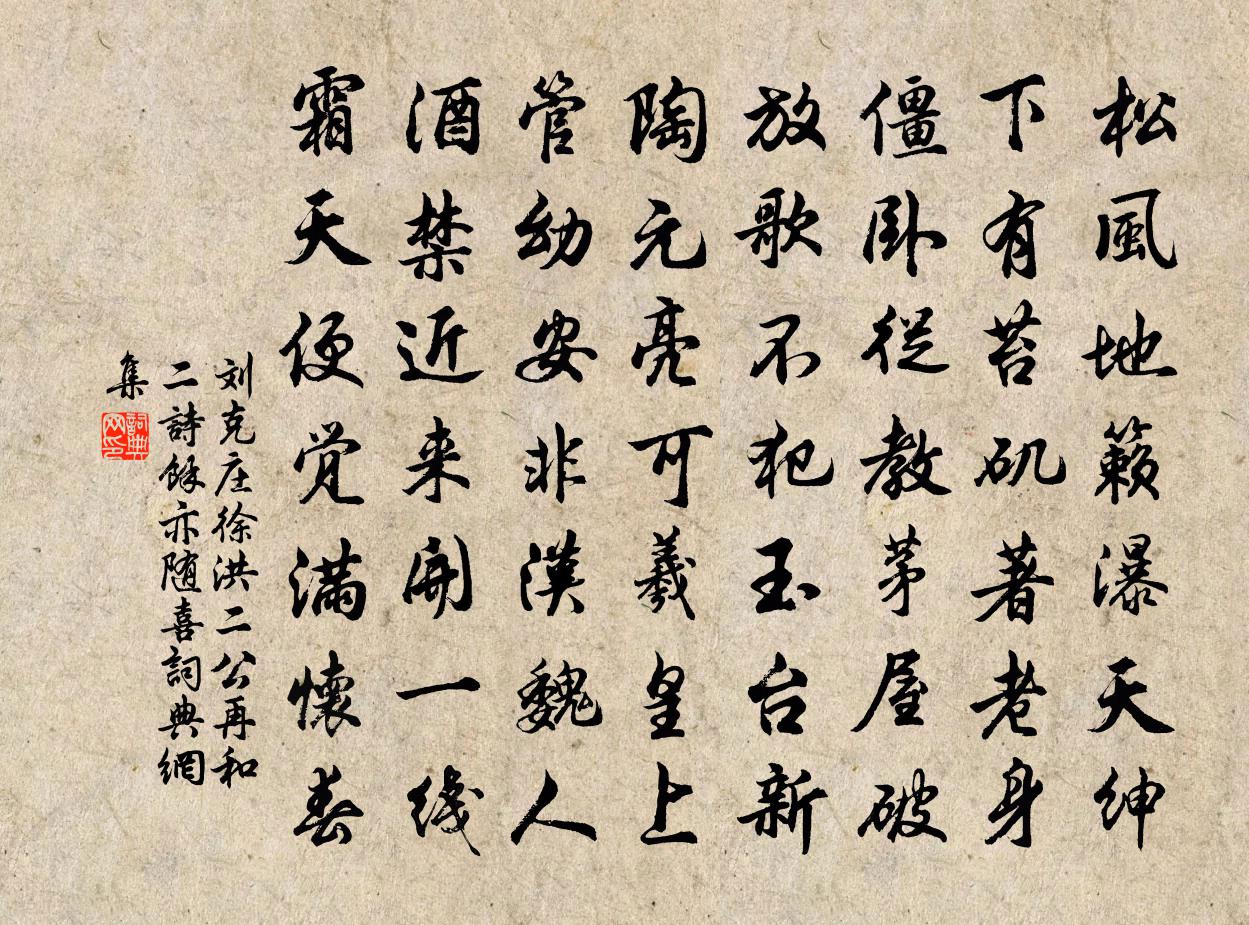 松風地籟瀑天紳
下有苔矶著老身
僵卧從教茅屋破
放歌不犯玉台新
陶元亮可羲皇上
管幼安非漢魏人
酒禁近来開一线
霜天便觉滿懷春
刘克庄徐洪二公再和
二詩餘亦随喜詞典網
集
詞典网印